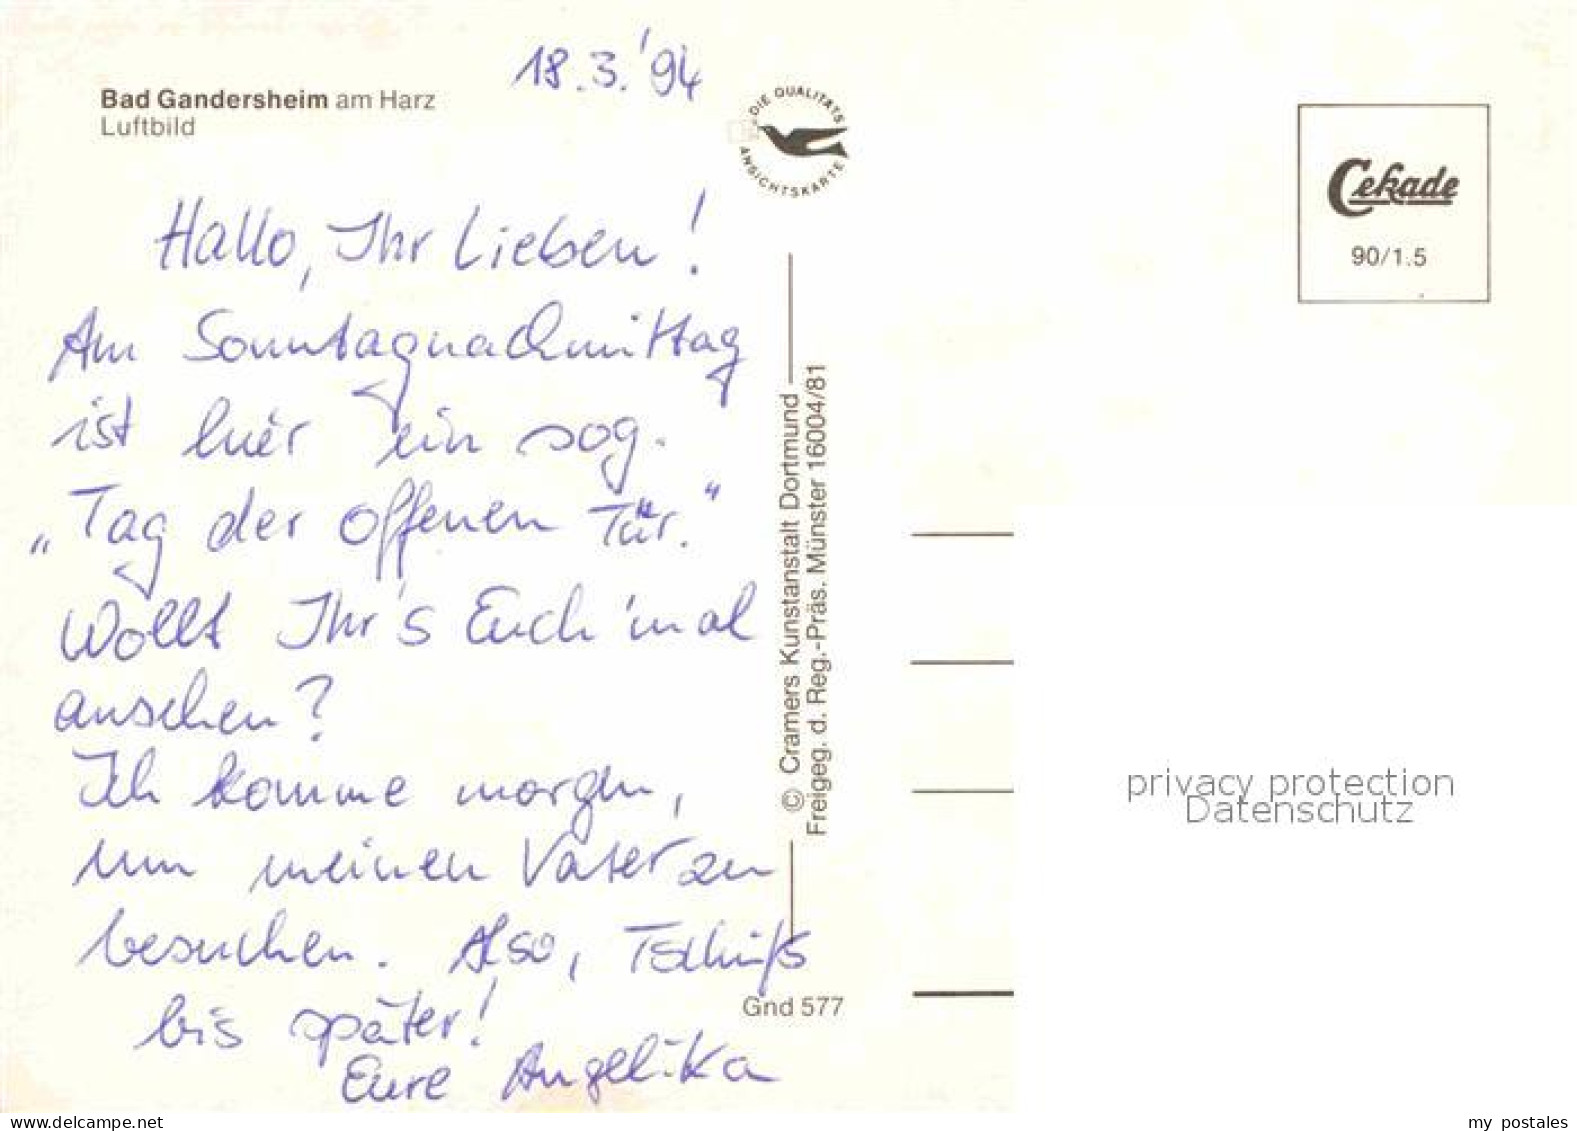 18.3.'94
Bad Gandersheim am Harz
Luftbild
DIE QUALITÄTS
ANSICHTSKARTE
Cekade
90/1.5
Hallo, Ihr Lieben!
Am Sonntagnachmittag
ist hier ein sog.
„Tag der offenen Tür."
Wollt Ihr's Euch 'mal
ansehen?
Ich komme morgen,
um meinen Vater zu
besuchen. Also, Tschüß
bis später!
Eure Angelika
© Cramers Kunstanstalt Dortmund
Freigeg. d. Reg.-Präs. Münster 16004/81
Gnd 577
privacy protection
Datenschutz
www.delcampe.net
my postales